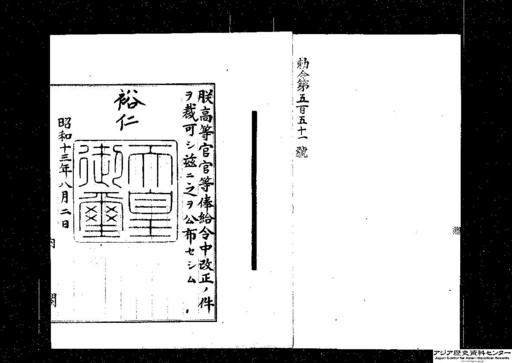 勅令第五百五十一號
朕高等官官等俸給令中改正ノ件
ヲ裁可シ玆ニ之ヲ公布セシム
裕仁
天皇御璽
昭和十三年八月二日
内閣
アジア歴史資料センター
Japan Center for Asian Historical Records